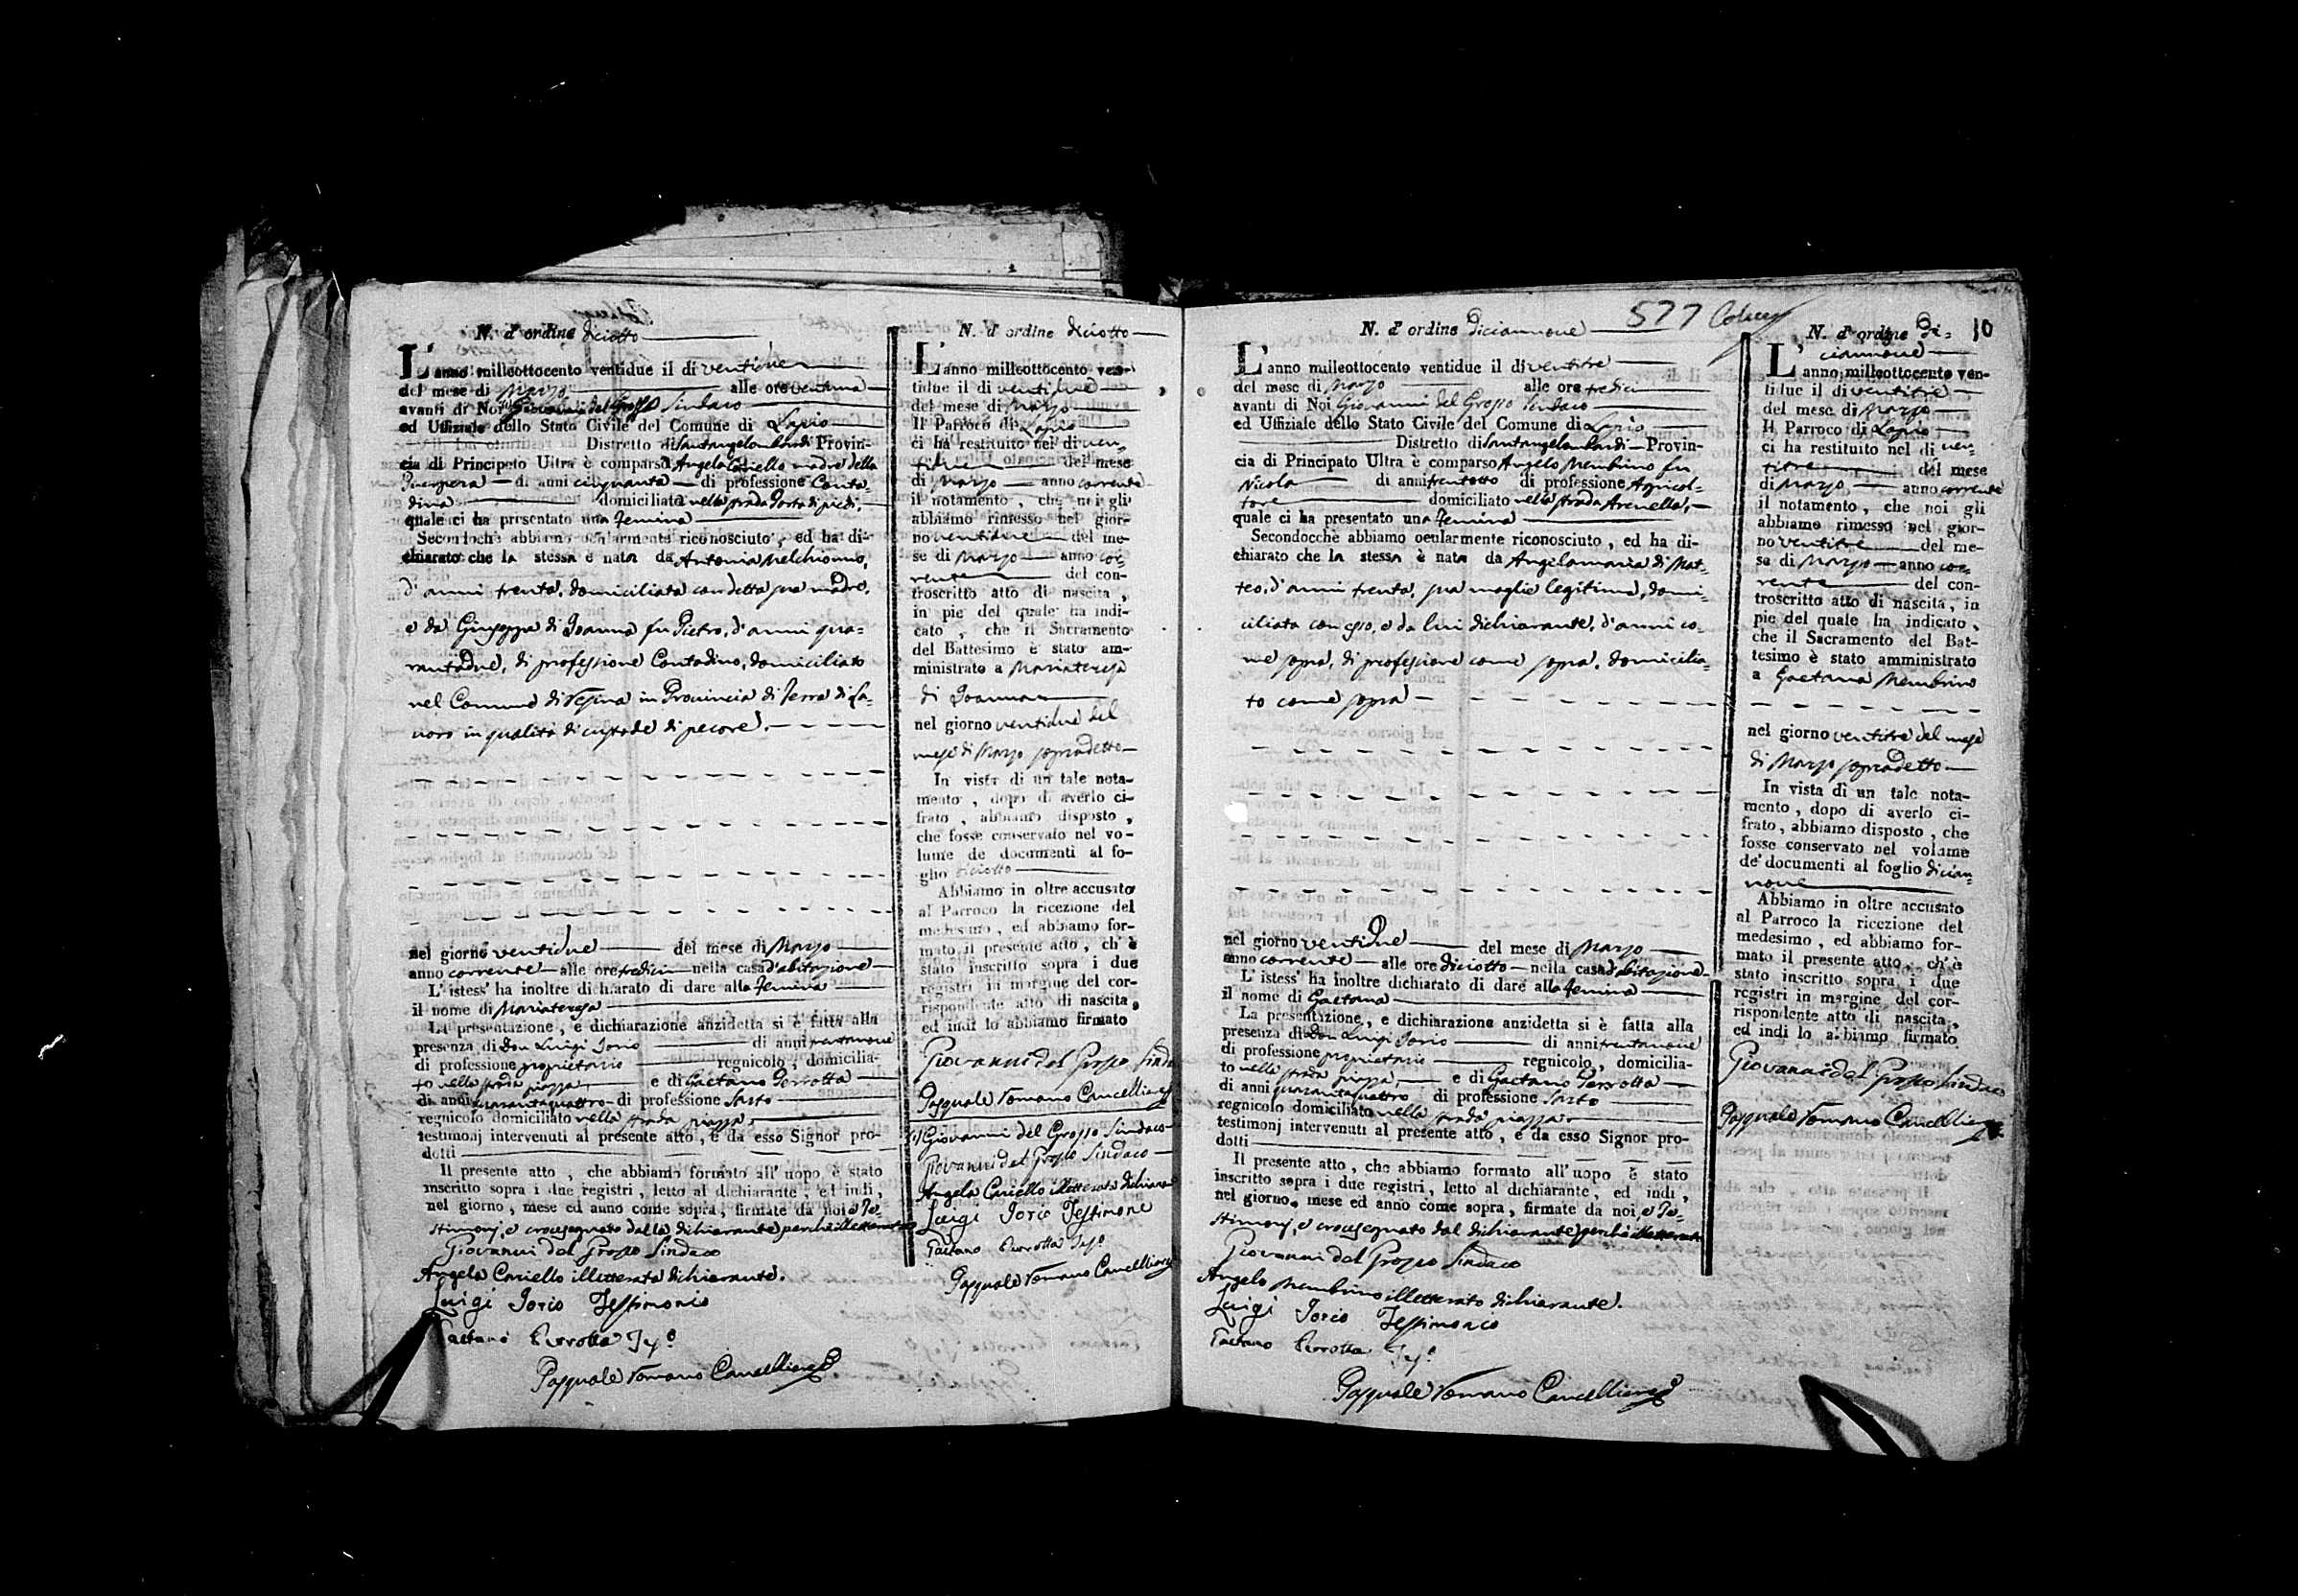 N. d'ordine diciotto
L'anno milleottocento ventidue il di ventidue
del mese di Marzo alle ore ventuna
avanti di Noi Giovanni del Grosso Sindaco
ed Uffiziale dello Stato Civile del Comune di Lapio
Distretto di Santangelo Lombardi Provin-
cia di Principato Ultra è comparsa Angela Cariello madre della
Puerpera di anni cinquanta di professione Conta-
dina domiciliata nella strada Porta di piedi,
quale ci ha presentato una Femina
Secondochè abbiamo ocularmente riconosciuto, ed ha di-
chiarato che la stessa è nata da Antonia Melchionno,
d'anni trenta, domiciliata con detta sua madre,
e da Giuseppe di Joanna fu Pietro, d'anni qua-
rantadue, di professione Contadino, domiciliato
nel Comune di in Provincia di Terra di La-
voro in qualità di custode di pecore.
nel giorno ventidue del mese di Marzo
anno corrente alle ore tredici nella casa d'abitazione
L'istess' ha inoltre dichiarato di dare alla Femina
il nome di Mariateresa
La presentazione, e dichiarazione anzidetta si è fatta alla
presenza di Don Luigi Iorio di anni trentanove
di professione proprietario regnicolo, domicilia-
to nella strada piazza, e di Gaetano Perrotta
di anni quarantaquattro di professione Sarto
regnicolo domiciliato nella strada piazza,
testimonj intervenuti al presente atto, e da esso Signor pro-
dotti
Il presente atto, che abbiamo formato all'uopo è stato
inscritto sopra i due registri, letto al dichiarante, ed indi,
nel giorno, mese ed anno come sopra, firmate da noi e Te-
stimonj, e crocesegnato dalla dichiarante perchè illetterata
Giovanni del Grosso Sindaco
Angela Cariello illetterata dichiarante.
Luigi Iorio Testimonio
Gaetano Perrotta Tes.º
Pasquale Romano Cancelliere
N. d'ordine diciotto
L'anno milleottocento ven-
tidue il di ventidue
del mese di Marzo
Il Parroco di Lapio
ci ha restituito nel di ven-
tidue del mese
di Marzo anno corrente
il notamento, che noi gli
abbiamo rimesso nel gior-
no ventidue del me-
se di Marzo anno cor-
rente del con-
troscritto atto di nascita,
in pie del quale ha indi-
cato, che il Sacramento
del Battesimo è stato am-
ministrato a Mariateresa
di Joanna
nel giorno ventidue del
mese di Marzo sopradetto
In vista di un tale nota-
mento, dopo di averlo ci-
frato, abbiamo disposto,
che fosse conservato nel vo-
lume de documenti al fo-
glio diciotto
Abbiamo in oltre accusato
al Parroco la ricezione del
medesimo, ed abbiamo for-
mato il presente atto, ch'è
stato inscritto sopra i due
registri in margine del cor-
rispondente atto di nascita,
ed indi lo abbiamo firmato
Giovanni del Grosso Sinda
Pasquale Romano Cancelliere
Giovanni del Grosso Sindaco
Giovanni del Grosso Sindaco
Angela Cariello illetterata dichiara
Luigi Iorio Testimone
Gaetano Perrotta Tes.º
Pasquale Romano Cancelliere
577
N. d'ordine diciannove
L'anno milleottocento ventidue il di ventitre
del mese di Marzo alle ore tredici
avanti di Noi Giovanni del Grosso Sindaco
ed Uffiziale dello Stato Civile del Comune di Lapio
Distretto di Santangelo Lombardi Provin-
cia di Principato Ultra è comparso Angelo Membrino fu
Nicola di anni trentotto di professione Agricol-
tore domiciliato nella strada Arenella,
quale ci ha presentato una Femina
Secondocchè abbiamo oculurmente riconosciuto, ed ha di-
chiarato che la stessa è nata da Angelamaria di Mat-
teo, d'anni trenta, sua moglie legitima, domi-
ciliata con esso, e da lui dichiarante, d'anni co-
me sopra, di professione come sopra, domicilia-
to come sopra
nel giorno ventidue del mese di Marzo
anno corrente alle ore diciotto nella casa d'abitazione
L'istess' ha inoltre dichiarato di dare alla Femina
il nome di Gaetana
La presentazione, e dichiarazione anzidetta si è fatta alla
presenza di Don Luigi Iorio di anni trentanove
di professione proprietario regnicolo, domicilia-
to nella strada piazza, e di Gaetano Perrotta
di anni quarantaquattro di professione Sarto
regnicolo domiciliato nella strada piazza
testimonj intervenuti al presente atto, e da esso Signor pro-
dotti
Il presente atto, che abbiamo formato all'uopo è stato
inscritto sopra i due registri, letto al dichiarante, ed indi,
nel giorno, mese ed anno come sopra, firmate da noi e Te-
stimonj, e crocesegnato dal dichiarante perchè illetterato
Giovanni del Grosso Sindaco
Angelo Membrino illetterato dichiarante.
Luigi Iorio Testimonio
Gaetano Perrotta Tes.º
Pasquale Romano Cancelliere
10
N. d'ordine di-
ciannove
L'anno milleottocento ven-
tidue il di ventitre
del mese di Marzo
Il Parroco di Lapio
ci ha restituito nel di ven-
titre del mese
di Marzo anno corrente
il notamento, che noi gli
abbiamo rimesso nel gior-
no ventitre del me-
se di Marzo anno cor-
rente del con-
troscritto atto di nascita, in
pie del quale ha indicato,
che il Sacramento del Bat-
tesimo è stato amministrato
a Gaetana Membrino
nel giorno ventitre del mese
di Marzo sopradetto
In vista di un tale nota-
mento, dopo di averlo ci-
frato, abbiamo disposto, che
fosse conservato nel volume
de' documenti al foglio dician-
nove
Abbiamo in oltre accusato
al Parroco la ricezione del
medesimo, ed abbiamo for-
mato il presente atto, ch'è
stato inscritto sopra i due
registri in margine del cor-
rispondente atto di nascita,
ed indi lo abbiamo firmato
Giovanni del Grosso Sindaco
Pasquale Romano Cancelliere